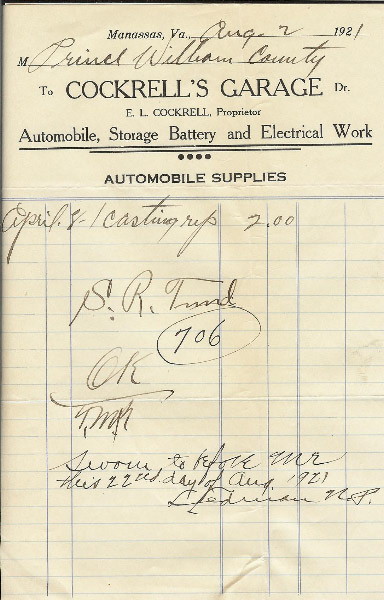 Manassas, Va., Aug. 2 1921
M Prince William County
To COCKRELL'S GARAGE Dr.
E. L. COCKRELL, Proprietor
Automobile, Storage Battery and Electrical Work
AUTOMOBILE SUPPLIES
April 8 - 1 casting rep 2.00
S. R. Fund
706
OK
Sworn to before me
this 22nd day of Aug. 1921
Ledman N.P.